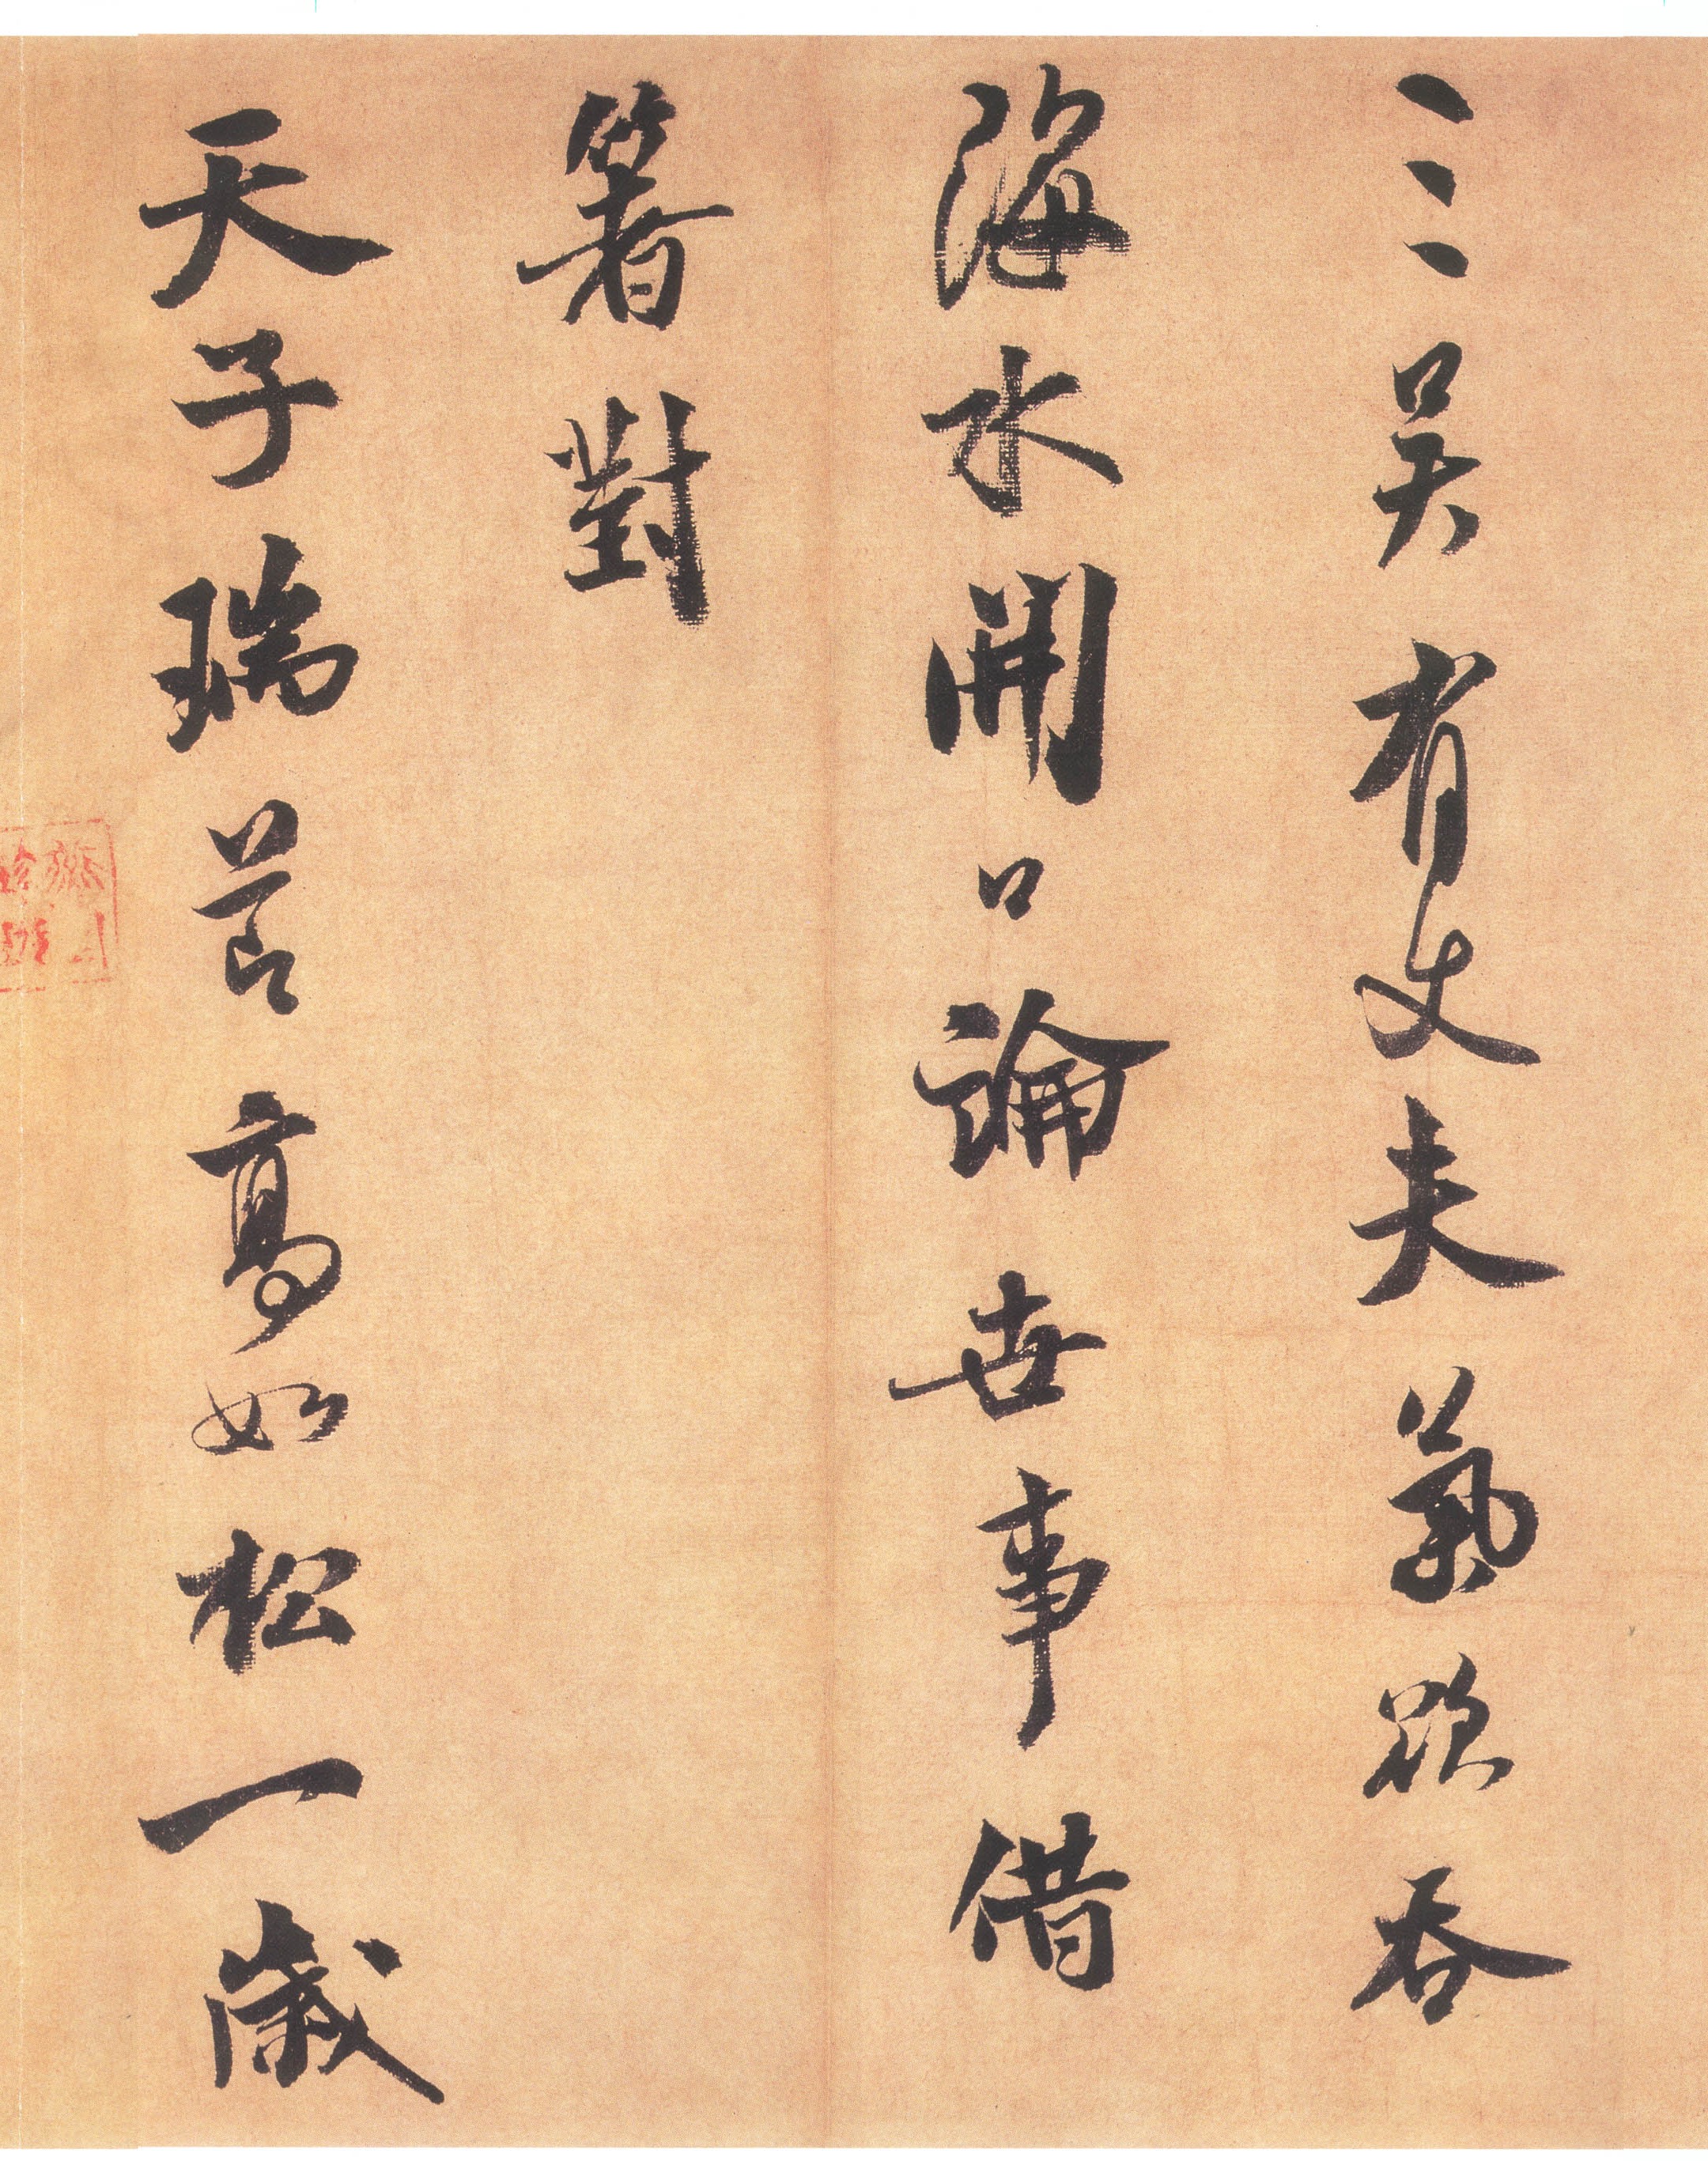 三吴有丈夫氣欲吞
海水開口論世事借
箸對
天子瑞節高如松一歲